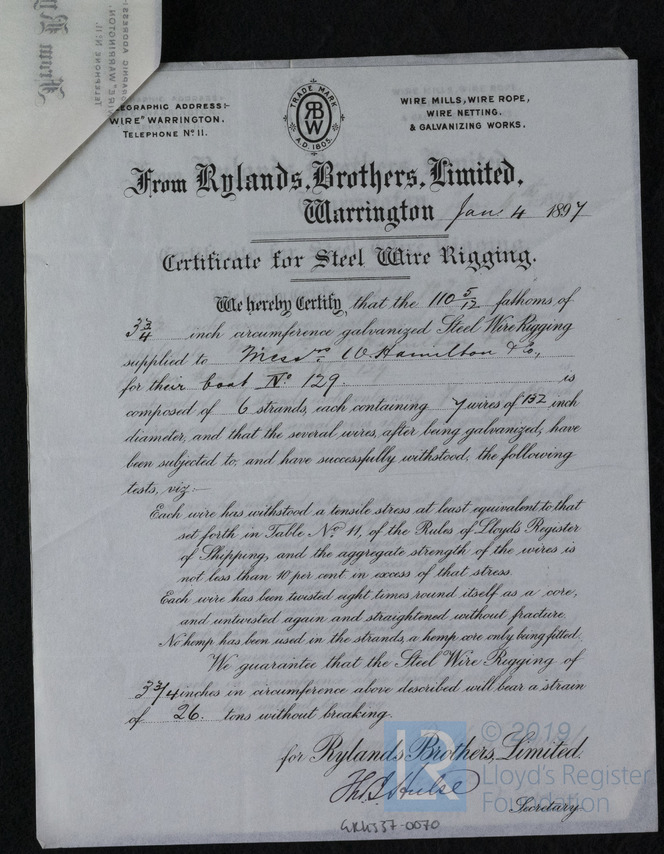 TELEGRAPHIC ADDRESS:-
"WIRE" WARRINGTON.
TELEPHONE No 11.
TRADE MARK
RBW
A.D. 1805.
WIRE MILLS, WIRE ROPE,
WIRE NETTING,
& GALVANIZING WORKS.
From Rylands, Brothers, Limited,
Warrington Jan. 4 1897
Certificate for Steel Wire Rigging.
We hereby Certify, that the 110 5/12 fathoms of
3 3/4 inch circumference galvanized Steel Wire Rigging
supplied to Messrs W. Hamilton & Co.,
for their boat No 129. is
composed of 6 strands, each containing 7 wires of .132 inch
diameter, and that the several wires, after being galvanized, have
been subjected to, and have successfully withstood, the following
tests, viz:—
Each wire has withstood a tensile stress at least equivalent to that
set forth in Table No 11, of the Rules of Lloyds Register
of Shipping, and the aggregate strength of the wires is
not less than 10 per cent in excess of that stress.
Each wire has been twisted eight times round itself as a core,
and untwisted again and straightened without fracture.
No hemp has been used in the strands, a hemp core only being fitted.
We guarantee that the Steel Wire Rigging of
3 3/4 inches in circumference above described will bear a strain
of 26. tons without breaking.
for Rylands Brothers, Limited.
Secretary.
LR
© 2019
Lloyd's Register
Foundation